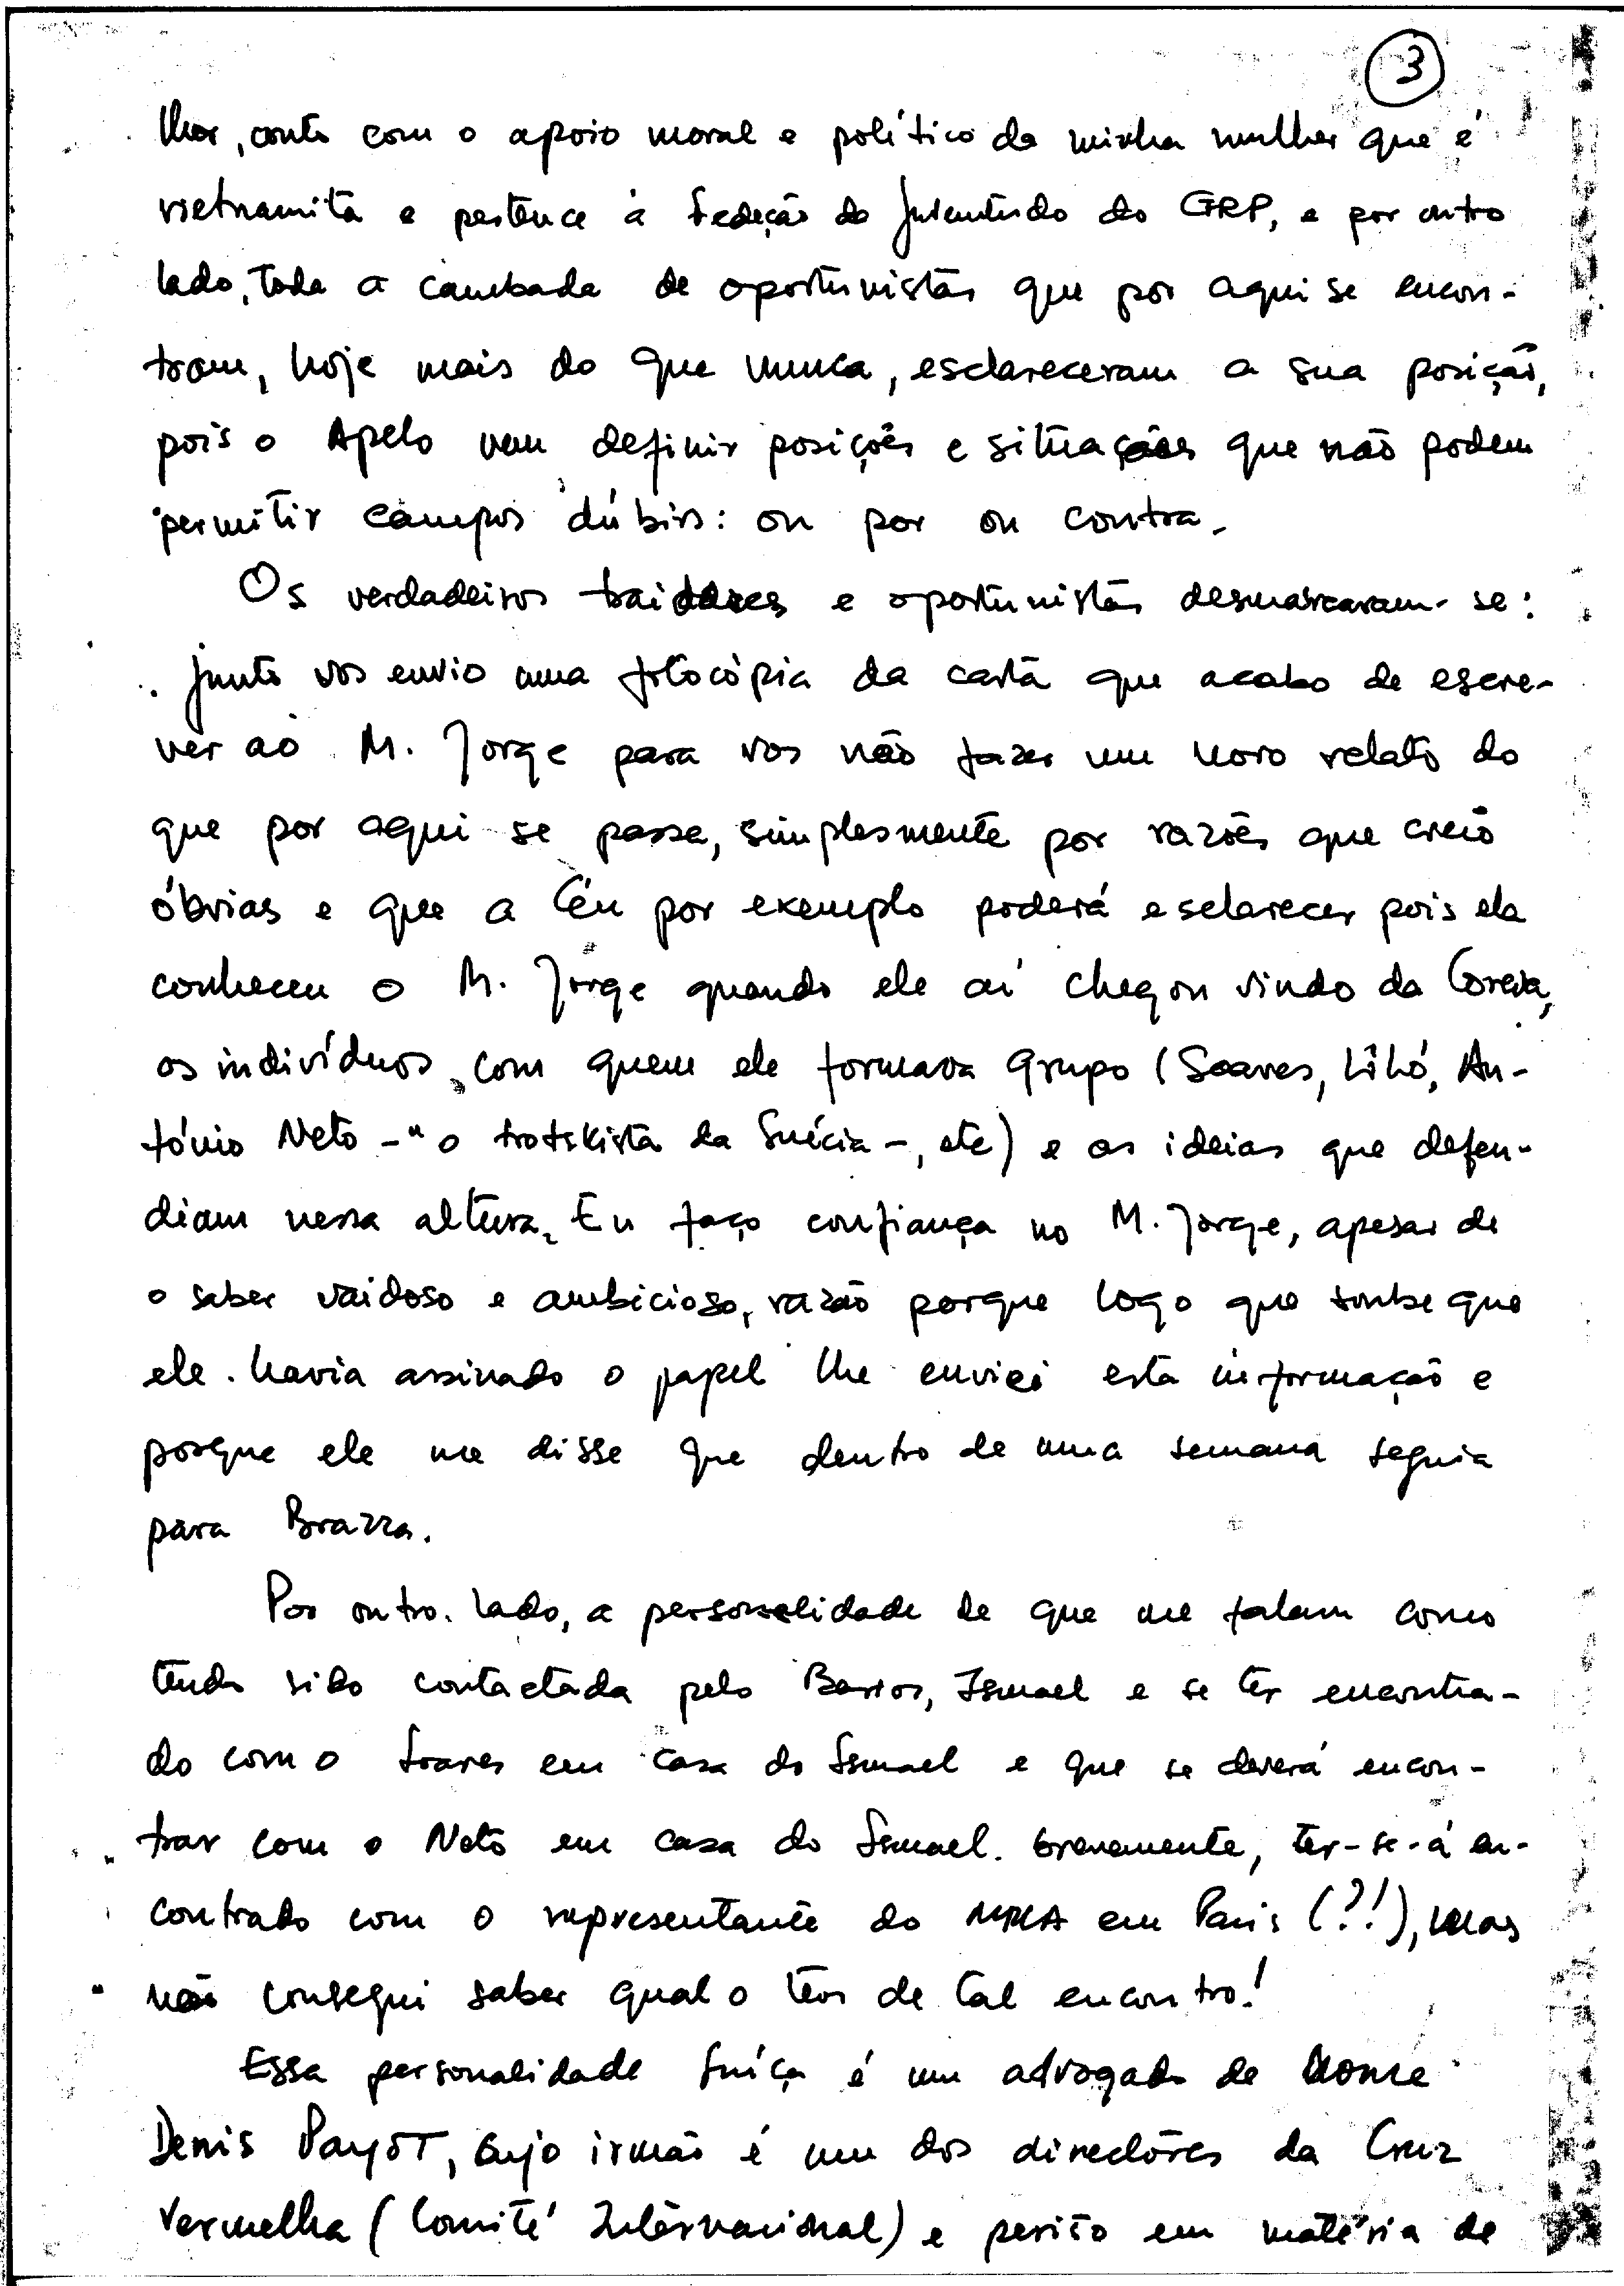 3
lhor, conto com o apoio moral e político da minha mulher que é
vietnamita e pertence à Secção da Juventude do GRP, e por outro
lado, toda a cambada de oportunistas que por aqui se encon-
tram, hoje mais do que nunca, esclareceram a sua posição,
pois o Apelo vem definir posições e situações que não podem
permitir campos dúbios: ou por ou contra.
Os verdadeiros traidores e oportunistas desmascaram-se:
junto vos envio uma fotocópia da carta que acabo de escre-
ver ao M. Jorge para vos não fazer um novo relato do
que por aqui se passa, simplesmente por razões que creio
óbvias e que a Céu por exemplo poderá esclarecer pois ela
conheceu o M. Jorge quando ele aí chegou vindo da Coreia,
os indivíduos com quem ele formava grupo (Soares, Liló, An-
tónio Neto -"o trotskista da Suécia -, etc) e as ideias que defen-
diam nessa altura. Eu faço confiança no M. Jorge, apesar de
o saber vaidoso e ambicioso, razão porque logo que soube que
ele havia assinado o papel lhe enviei esta informação e
porque ele me disse que dentro de uma semana seguia
para Brazza.
Por outro lado, a personalidade de que me falam como
tendo sido contactada pelo Barros, Ismael e se ter encontra-
do com o Soares em casa do Ismael e que se deverá encon-
trar com o Neto em casa do Ismael brevemente, ter-se-á en-
contrado com o representante do MPLA em Paris (?!), mas
não consegui saber qual o teor de tal encontro!
Essa personalidade Suíça é um advogado de nome
Denis Payot, cujo irmão é um dos directores da Cruz
Vermelha (Comité Internacional) e perito em matéria de